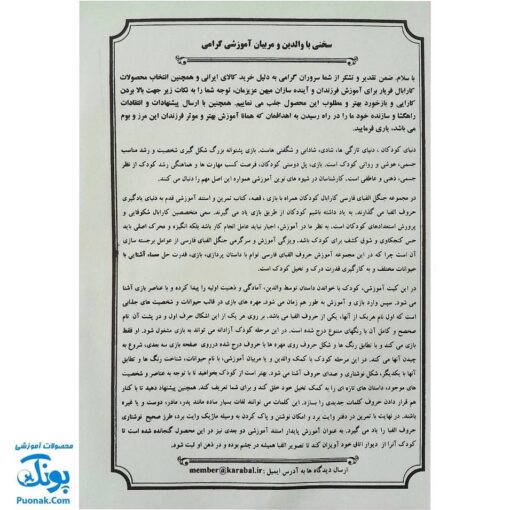 سخنی با والدین و مربیان آموزشی گرامی
با سلام، ضمن تقدیر و تشکر از شما سروران گرامی به دلیل خرید کالای ایرانی و همچنین انتخاب محصولات
کارابال فربار برای آموزش فرزندان و آینده سازان میهن عزیزمان، توجه شما را به نکات زیر جهت بالا بردن
کارایی و بازخورد بهتر و مطلوب این محصول جلب می نماییم. همچنین با ارسال پیشنهادات و انتقادات
راهگشا و سازنده خود ما را در راه رسیدن به اهدافمان که همانا آموزش بهتر و موثر فرزندان این مرز و بوم
می باشد، یاری فرمایید.
دنیای کودکان ، دنیای تازگی ها، شادی، شادابی و شگفتی هاست. بازی پشتوانه بزرگ شکل گیری شخصیت و رشد متناسب
جسمی، هوشی و روانی کودک است. بازی، پل دوستی کودکان، فرصت کسب مهارت ها و هماهنگی رشد کودک از نظر
جسمی، ذهنی و عاطفی است. کارشناسان در شیوه های نوین آموزشی همواره این اصل مهم را دنبال می کنند.
در مجموعه جنگل الفبای فارسی کارابال کودکان همراه با بازی ، قصه، کتاب تمرین و استند آموزشی قدم به دنیای یادگیری
حروف الفبا می گذارند. به یاد داشته باشیم کودکان از طریق بازی یاد می گیرند. سعی متخصصین کارابال شکوفایی و
پرورش استعدادهای کودکان است. به نظر ما در آموزش، اجبار نباید عامل انجام کار باشد بلکه انگیزه و محرک اصلی باید
حس کنجکاوی و شوق کشف برای کودک باشد. ویژگی آموزش و سرگرمی جنگل الفبای فارسی از عوامل برجسته سازی
آن است چرا که در این مجموعه آموزش حروف الفبای فارسی توام با داستان پردازی، بازی، قدرت حل معما، آشنایی با
حیوانات مختلف و به کارگیری قدرت درک و تخیل کودک است.
در این کیت آموزشی، کودک با خواندن داستان توسط والدین، آمادگی و ذهنیت اولیه را پیدا کرده و با عناصر بازی آشنا
می شود. سپس وارد بازی و آموزش به طور هم زمان می شود. مهره های بازی در قالب حیوانات و شخصیت های جذابی
است که اول نام هریک از آنها، یکی از حروف الفبا می باشد. بر روی هر یک از این اشکال حرف اول و در پشت آن نام
صحیح و کامل آن با رنگهای متنوع درج شده است. در این مرحله کودک آزادانه می تواند به بازی مشغول شود. او فقط
بازی می کند و با تطابق رنگ ها و شکل حروف روی مهره ها با حروف درج شده درروی صفحه بازی سه بعدی، شروع به
چیدن آنها می کند. در این مرحله کودک با کمک والدین و یا مربیان آموزشی، با نام حیوانات، شناخت رنگ ها و تطابق
آنها با یکدیگر، شکل نوشتاری و صدای حروف آشنا می شود. بهتر است از کودک بخواهید تا با توجه به عناصر و شخصیت
های موجود، داستان های تازه ای را به کمک تخیل خود خلق کند و برای شما تعریف کند. همچنین پیشنهاد دهید تا با کنار
هم قرار دادن حروف کلمات جدیدی را بسازد. این کلمات می توانند لغات بسیار ساده مانند پدر، مادر، دوست و یا غیره
باشند. در نهایت با تمرین در دفتر وایت برد و امکان نوشتن و پاک کردن به وسیله ماژیک وایت برد، طرز صحیح نوشتاری
حروف الفبا را یاد می گیرد. به عنوان آموزش پایدار استند آموزشی دو بعدی نیز در این محصول گنجانده شده است تا
کودک آنرا از دیوار اتاق خود آویزان کند تا تصویر الفبا همیشه در چشم بوده و در ذهن او ثبت شود.
ارسال دیدگاه ها به آدرس ایمیل : member@karabal.ir
محصولات آموزشی
پونک
Puonak.Com